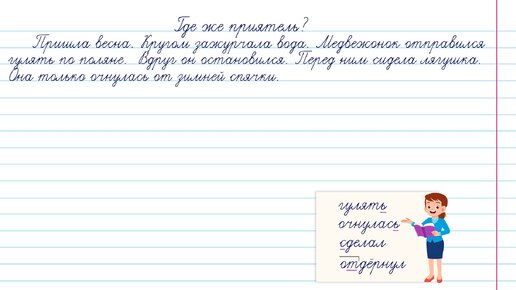 Где же приятель?
Пришла весна. Кругом зажурчала вода. Медвежонок отправился
гулять по поляне. Вдруг он остановился. Перед ним сидела лягушка.
Она только очнулась от зимней спячки.
гулять
очнулась
сделал
отдёрнул